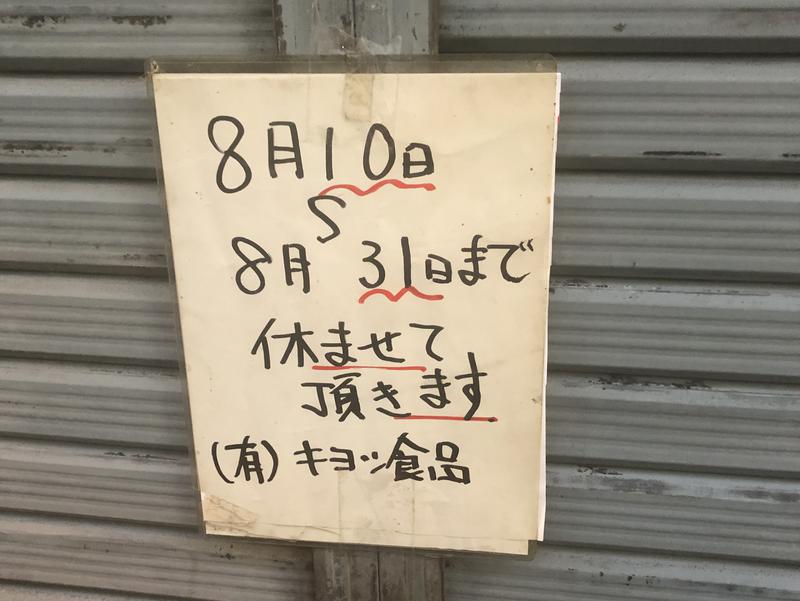 8月10日
〜
8月31日まで
休ませて
頂きます
(有)キヨッ食品